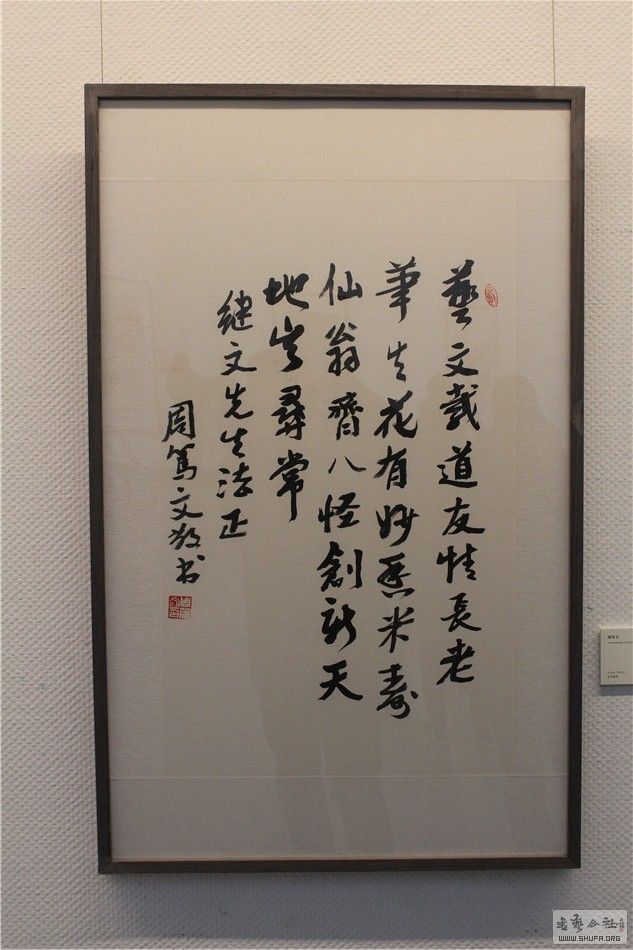 藝文載道友情長老
筆生花有妙香米壽
仙翁齊八怪創新天
地岂尋常
継文先生法正
周篤文敬书
书藝公社
WWW.SHUFA.ORG